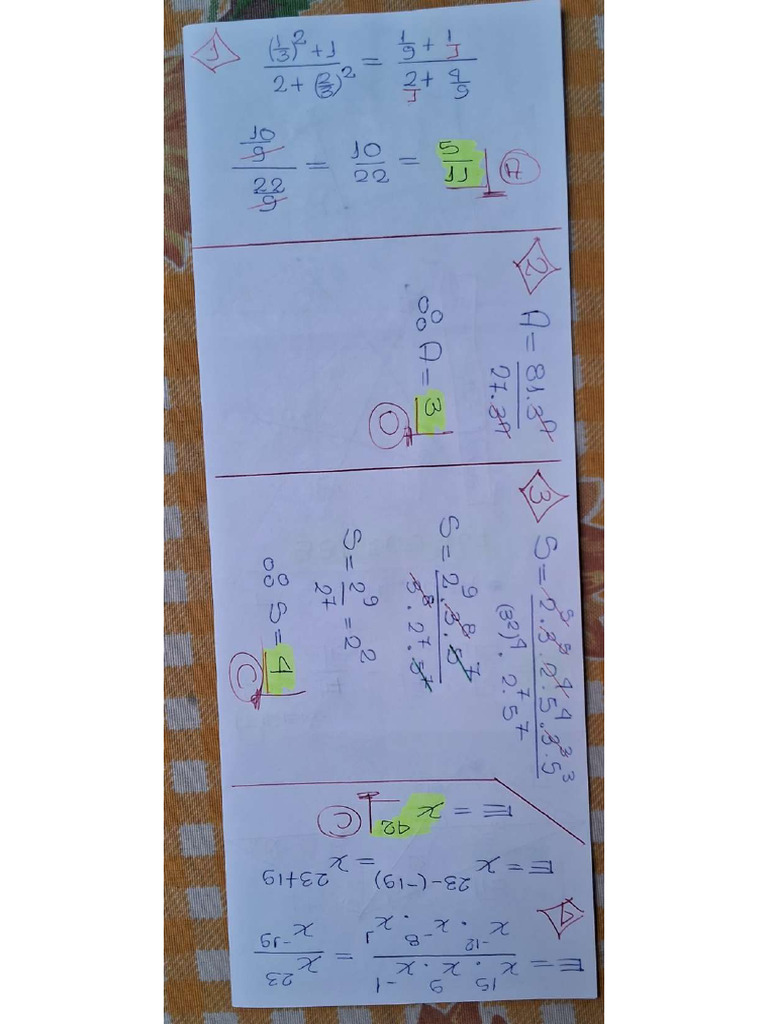 1
(1/3)² + 1 / 2 + (2/3)² = 1/9 + 1/1 / 2/1 + 4/9
10/9 / 22/9 = 10/22 = 5/11 A
2
A = 81.3⁴ / 27.3⁴
∴ A = 3
3
S = 2⁵.3⁵.2⁴.5⁴.3³.5³ / (3²)⁴.2⁷.5⁷
S = 2⁹.3⁸.5⁷ / 3⁸.2⁷.5⁷
S = 2⁹ / 2⁷ = 2²
∴ S = 4 C
4
E = x¹⁵.x⁹.x⁻¹ / x⁻¹².x⁻⁸.x¹ = x²³ / x⁻¹⁹
E = x²³⁻⁽⁻¹⁹⁾ = x²³⁺¹⁹
E = x⁴² C